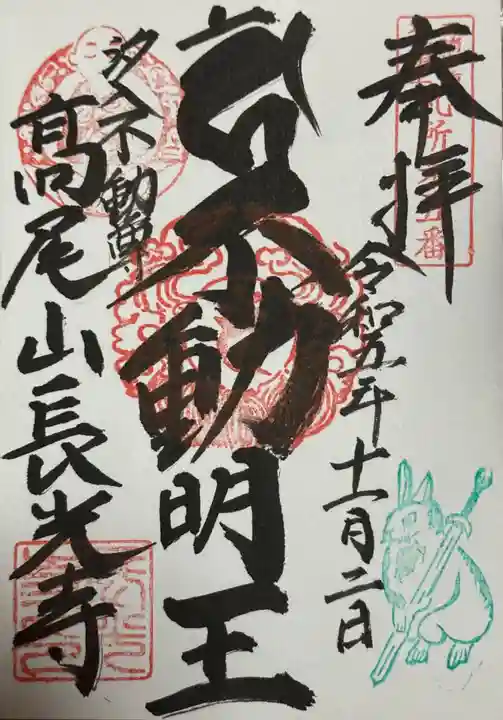 奉拝
令和五年十一月二日
不動明王
汐不動尊
高尾山長光寺